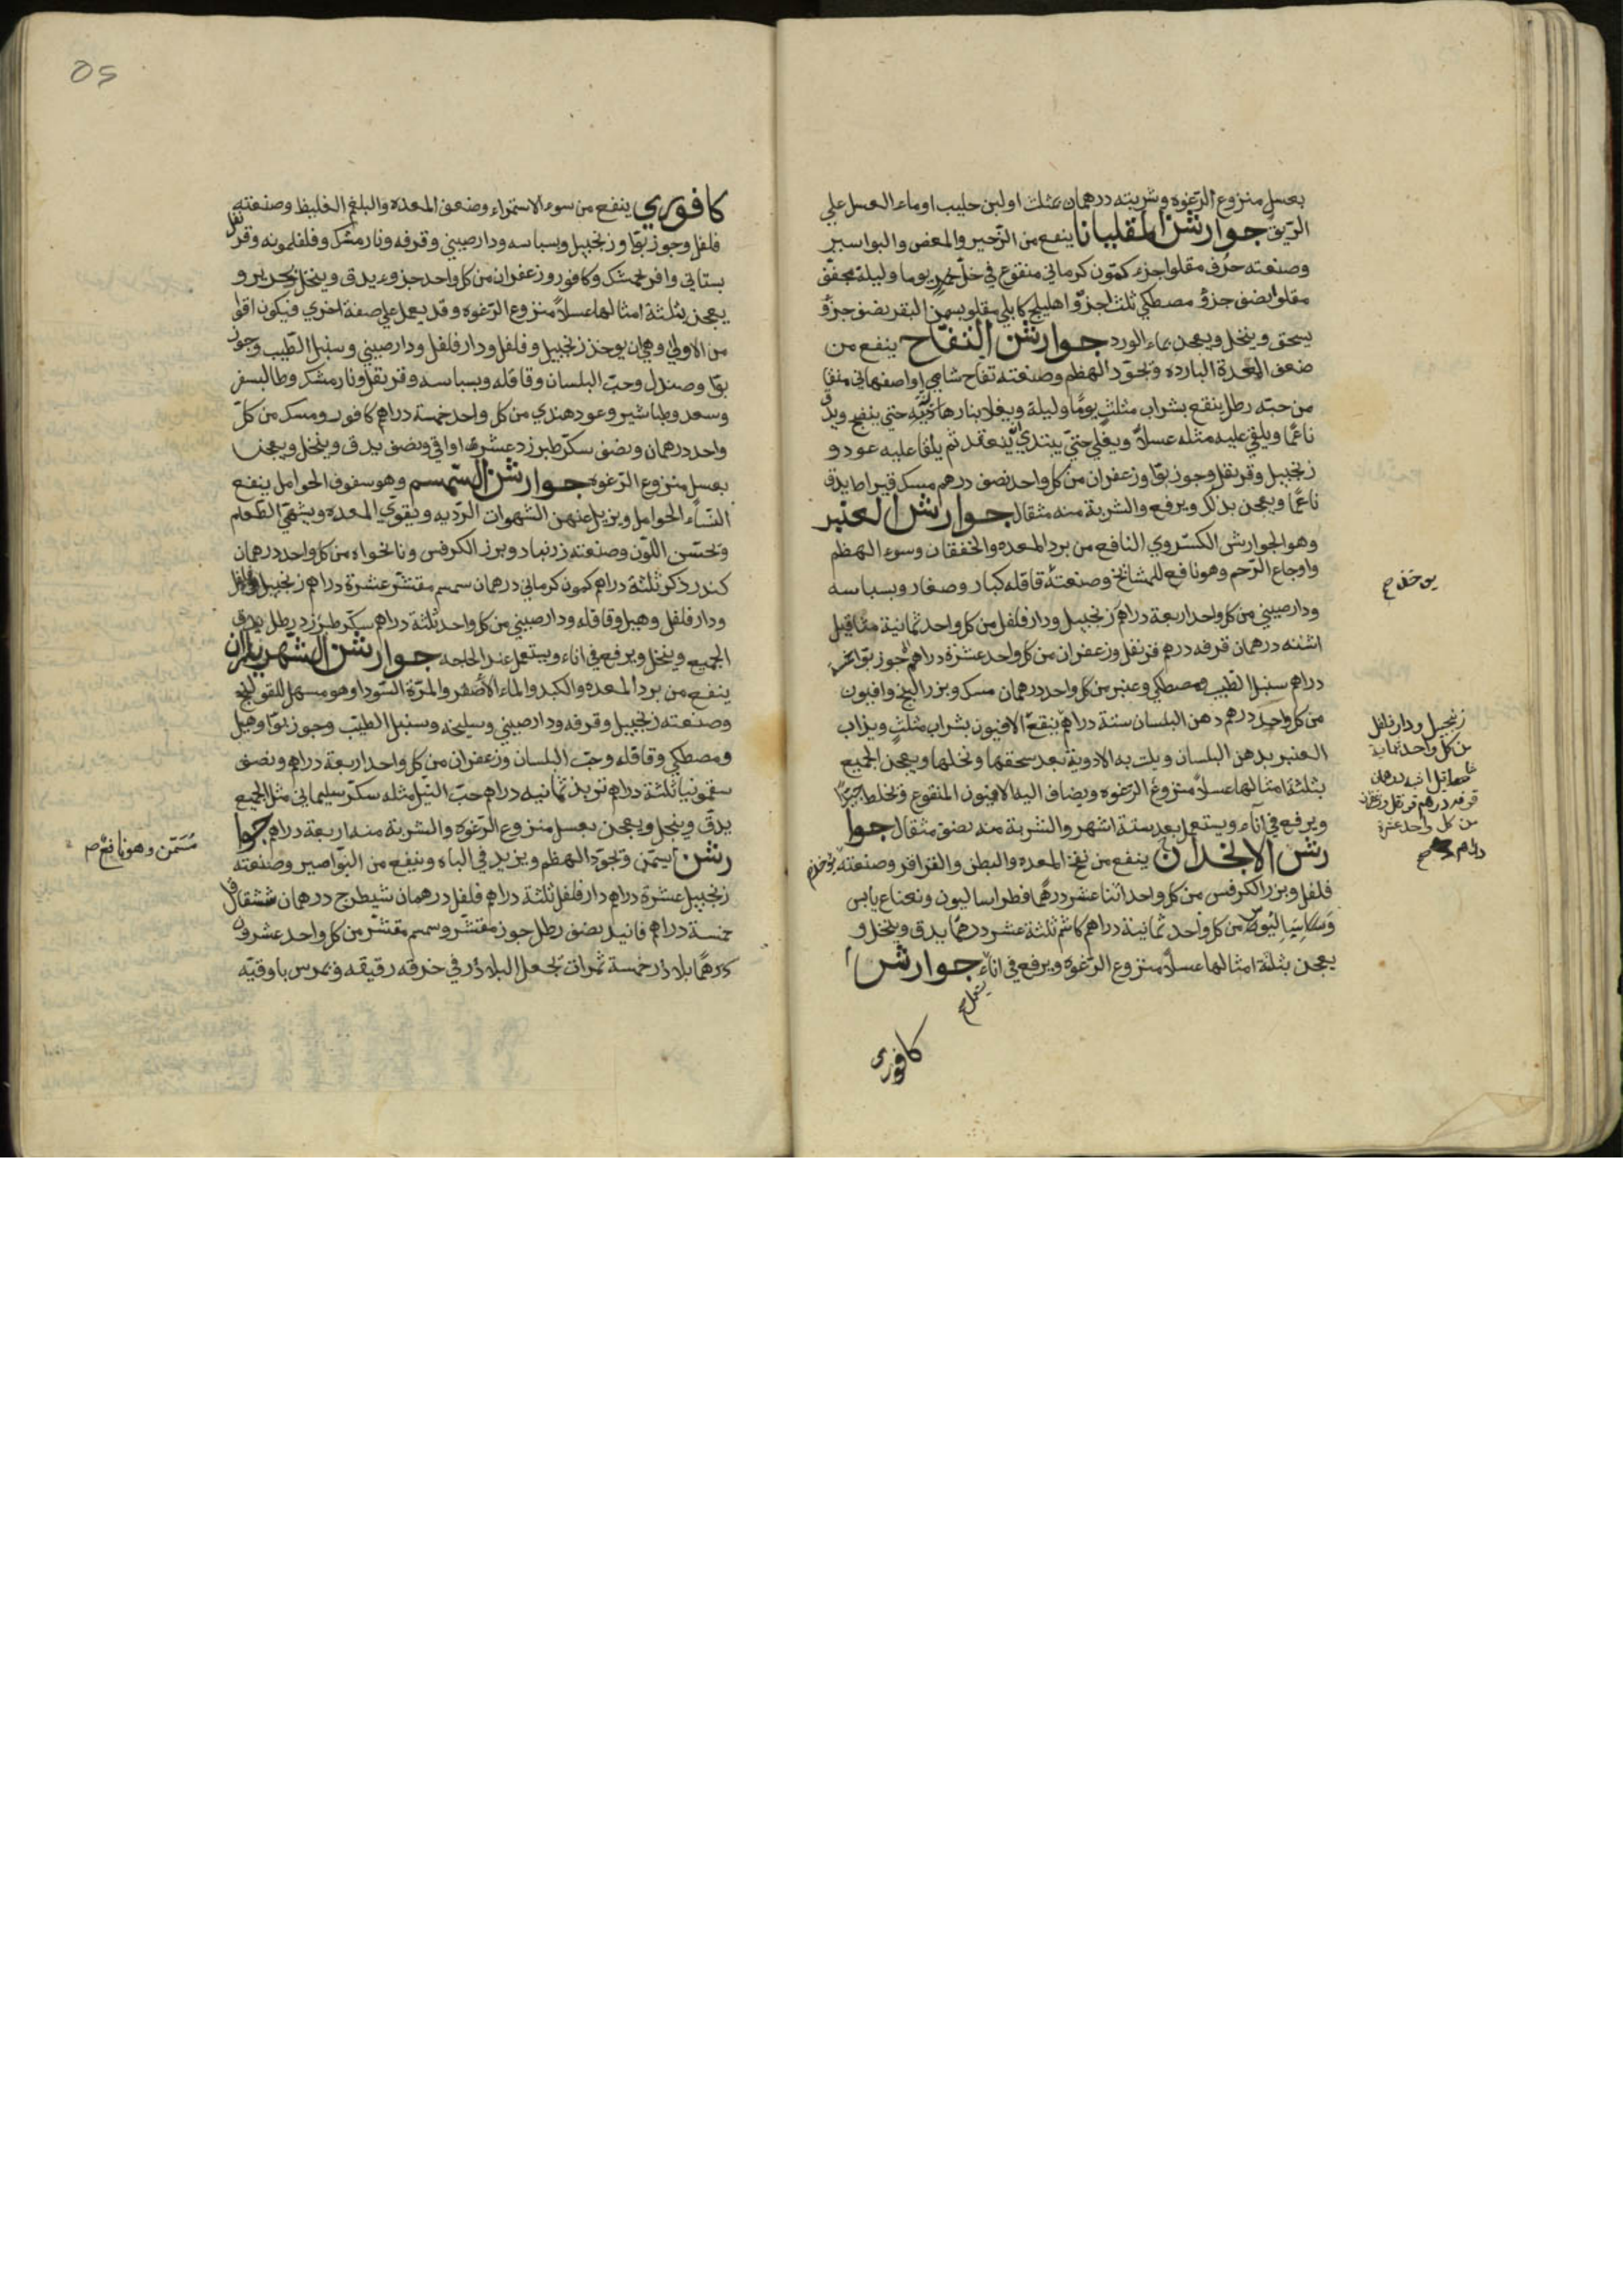 بعسل منزوع الرغوه وشربته درهمان بمثلث اولبن حليب اوماء العسل علي
الريق جوارشن المقليانا ينفع من الزحير والمغص والبواسير
وصنعته حرف مقلو اجزء كمون كرماني منقوع في خل خمر يوما وليلة مجفف
مقلو انصف جزؤ مصطكي ثلث اجزؤ اهليلج كابلي مقلو بسمن البقر نصف جزؤ
يسحق وينخل ويعجن بماء الورد جوارشن التفاح ينفع من
ضعف المعدة البارده وتجود الهظم وصنعته تفاح شامي اواصفهاني منقا
من حبته رطل ينقع بشراب مثلث يوما وليلة ويغلا بنار هادئة حتي ينضج ويدق
ناعما ويلقي عليه مثله عسلا ويغلي حتي يبتدي ينعقد ثم يلقا عليه عود و
زنجبيل وقرنفل وجوز بوا وزعفران من كل واحد نصف درهم مسك قيراط يدق
ناعما ويعجن بذلك ويرفع والشربة منه مثقال جوارشن العنبر
وهو الجوارشن الكسروي النافع من برد المعده والخفقان وسوء الهظم
واوجاع الرحم وهو نافع للمشائخ وصنعته قاقله كبار وصغار وبسباسه
ودارصيني من كل واحد اربعة دراهم زنجبيل ودارفلفل من كل واحد ثمانية مثاقيل
اشنه درهمان قرفه درهم قرنفل وزعفران من كل واحد عشرة دراهم جوز بوا
دراهم سنبل الطيب ومصطكي وعنبر من كل واحد درهمان مسك وبزر البنج وافيون
من كل واحد درهم دهن البلسان ستة دراهم ينقع الافيون بشراب مثلث ويذاب
العنبر بدهن البلسان ويلت به الادوية بعد سحقها ونخلها ويعجن الجميع
بثلثة امثالها عسلا منزوع الرغوه ويضاف اليه الافيون المنقوع وتخلط جيدا
ويرفع في اناء ويستعمل بعد ستة اشهر والشربة منه نصف مثقال جوا
رشن الانجدان ينفع من نفخ المعده والبطن والقراقر وصنعته يوخذ
فلفل وبزر الكرفس من كل واحد اثنا عشر درهما فطراساليون ونعناع يابس
وسساليوس من كل واحد ثمانية دراهم كاشم ثلثة عشر درهما يدق وينخل و
يعجن بثلثة امثالها عسلا منزوع الرغوه ويرفع في اناء جوارشن
يستعمل
كافوري
زنجبيل ودارفلفل
من كل واحد ثمانية
مثاقيل اشنه درهمان
قرفه درهم قرنفل وزعفران
من كل واحد عشرة
دراهم
05
كافوري ينفع من سوء الاستمراء وضعف المعده والبلغم الغليظ وصنعته
فلفل وجوز بوا وزنجبيل وبسباسه ودارصيني وقرفه ونارمشك وفلفلمونه وقرنفل
بستاني وافرنجمشك وكافور وزعفران من كل واحد جزوء يدق وينخل بحرير و
يعجن بثلثة امثالها عسلا منزوع الرغوه وقد يعمل علي صفة اخري فيكون اقوا
من الاولي وهي ان يوخذ زنجبيل وفلفل ودارفلفل ودارصيني وسنبل الطيب وجوز
بوا وصندل وحب البلسان وقاقله وبسباسه وقرنفل ونارمشك وطاليسفر
وسعد وطباشير وعود هندي من كل واحد خمسة دراهم كافور ومسك من كل
واحد درهمان ونصف سكر طبرزد عشرة اواقي ونصف يدق وينخل ويعجن
بعسل منزوع الرغوه جوارشن السمسم وهو سفوف الحوامل ينفع
النساء الحوامل ويزيل عنهن الشهوات الرديه ويقوي المعده ويشهي الطعام
وتحسن اللون وصنعته زرنباد وبزر الكرفس ونانخواه من كل واحد درهمان
كندر ذكر ثلثة دراهم كمون كرماني درهمان سمسم مقشر عشرة دراهم زنجبيل وفلفل
ودارفلفل وهيل وقاقله ودارصيني من كل واحد ثلثة دراهم سكر طبرزد رطل يدق
الجميع وينخل ويرفع في اناء ويستعمل عند الحاجه جوارشن الشهرياران
ينفع من برد المعده والكبد والماء الاصفر والمرة السودا وهو مسهل للقولنج
وصنعته زنجبيل وقرفه ودارصيني وسليخه وسنبل الطيب وجوز بوا وهيل
ومصطكي وقاقله وحب البلسان وزعفران من كل واحد اربعة دراهم ونصف
سقمونيا ثلثة دراهم تربذ ثمانيه دراهم حب النيل مثله سكر سليماني مثل الجميع
يدق وينخل ويعجن بعسل منزوع الرغوه والشربة منه اربعة دراهم جوا
رشن يسمن وتجود الهظم ويزيد في الباه وينفع من البواصير وصنعته
زنجبيل عشرة دراهم دارفلفل ثلثة دراهم فلفل درهمان شيطرج درهمان ششقاقل
خمسة دراهم فانيد نصف رطل جوز مقشر وسمسم مقشر من كل واحد عشرون
درهما بلاذر خمسة ثمرات تجعل البلاذر في خرقه رقيقه ويمرس باوقيه
مسمن وهو نافع